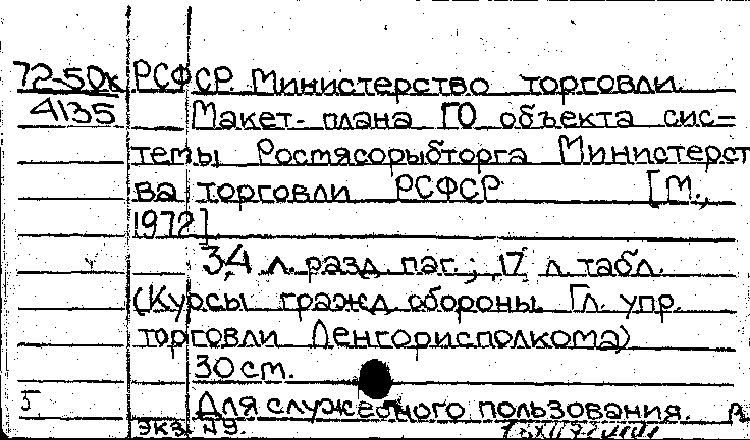 72-50к РСФСР. Министерство торговли.
4135 Макет-плана ГО объекта сис=
темы Ростясорыбторга Министерст
ва торговли РСФСР [М.,
1972]
34 л. разд. паг.; 17 л. табл.
(Курсы гражд обороны Гл. упр.
торговли Ленгорисполкома)
30 см.
5 Для служебного пользования.
экз. №9.